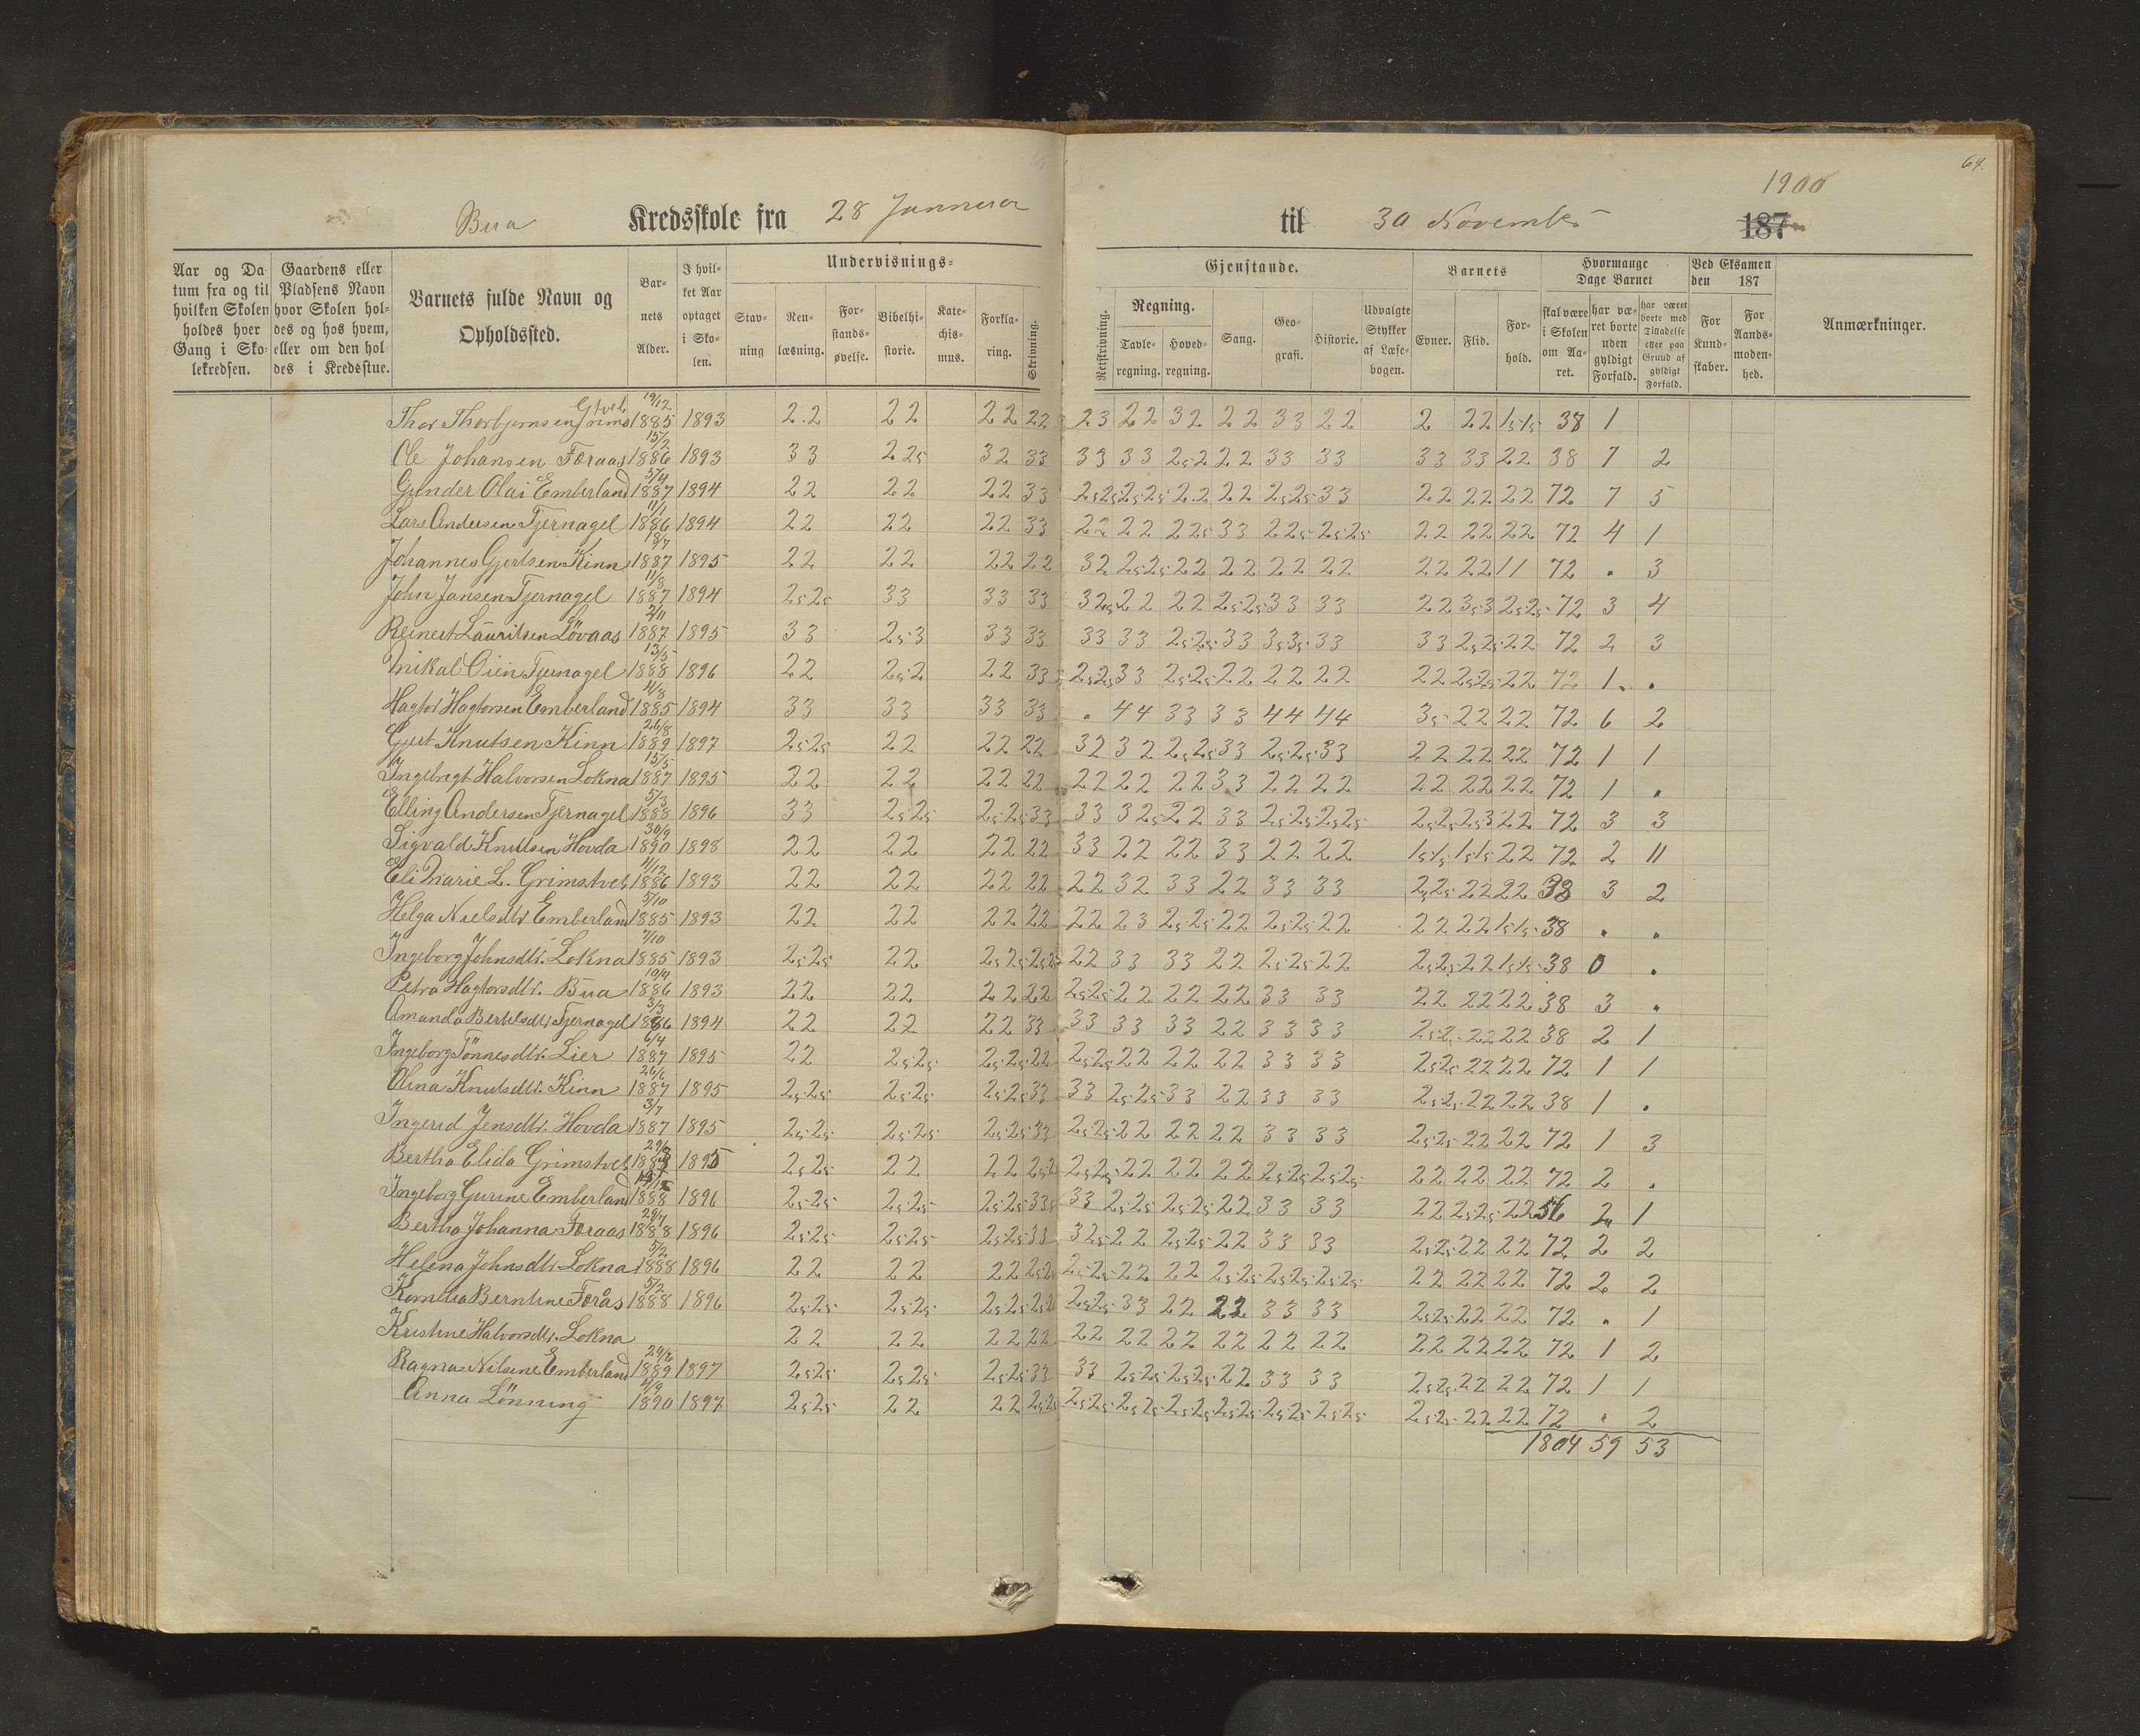 64.
1900
Bua Kredsskole fra 28 Januar til 30 November 187
Aar og Datum fra og til hvilken Skolen holdes hver Gang i Skolekredsen. Gaardens eller Pladsens Navn hvor Skolen holdes og hos hvem, eller om den holdes i Kredsstue. Barnets fulde Navn og Opholdssted. Barnets Alder. I hvilket Aar optaget i Skolen. Undervisnings- Gjenstande. Barnets Hvormange Dage Barnet Ved Eksamen den 187 Anmærkninger.
Stavning Renlæsning. Forstandsøvelse. Bibelhistorie. Katechismus. Forklaring. Skrivning. Retskrivning. Regning. Tavleregning. Hovedregning. Sang. Geografi. Historie. Udvalgte Stykker af Læsebogen. Evner. Flid. Forhold. skal være i Skolen om Aaret. har været borte uden gyldigt Forfald. har været borte med Tilladelse eller paa Grund af gyldigt Forfald. For Kundskaber. For Aandsmodenhed.
Thor Thorbjørnsen Grimstvet 19/12 1885 1893 2.2 22 22 22 23 22 32 22 33 22 2 22 1,5 1,5 38 1
Ole Johansen Føraas 15/2 1886 1893 33 2 2,5 32 33 33 33 2,5 2 22 33 33 33 33 22 38 7 2
Gunder Olai Emberland 5/4 1887 1894 22 22 22 33 2,5 2,5 2,5 2,5 2.2 22 2,5 2,5 33 22 22 22 72 7 5
Lars Andersen Tjernagel 11/1 1886 1894 22 22 22 33 22 22 2 2,5 33 2 2,5 2,5 2,5 22 22 22 72 4 1
Johannes Gjertsen Kinn 18/7 1887 1895 22 22 22 22 32 2,5 2,5 22 22 22 22 22 22 11 72 . 3
John Jansen Tjernagel 11/8 1887 1894 2,5 2,5 33 33 33 3 2,5 22 22 2,5 2,5 33 33 22 3,5 3 2,5 2,5 72 3 4
Reinert Lauritsen Løvaas 2/11 1887 1895 33 2,5 3 33 33 33 33 2,5 2,5 33 3,5 3,5 33 33 2,5 2,5 22 72 2 3
Mikal Oien Tjernagel 13/5 1888 1896 22 2,5 2 22 33 2,5 2,5 33 2,5 2,5 22 22 22 22 2,5 2,5 22 72 1 .
Hagtor Hagtorsen Emberland 4/8 1885 1894 33 33 33 33 . 44 33 33 44 44 3,5 22 22 72 6 2
Gjert Knutsen Kinn 26/8 1889 1897 2,5 2,5 22 22 22 32 32 2,5 2,5 33 2,5 2,5 33 22 22 22 72 1 1
Ingebrigt Halvorsen Lokna 15/5 1887 1895 22 22 22 22 22 22 22 33 22 22 22 22 22 72 1 .
Elling Andersen Tjernagel 5/3 1888 1896 33 2,5 2,5 2,5 2,5 33 33 3 2,5 22 33 2,5 2,5 2,5 2,5 2,5 2,5 2,5 3 22 72 3 3
Sigvald Knutsen Hovda 30/9 1890 1898 22 22 22 22 33 22 22 33 22 22 1,5 1,5 1,5 1,5 22 72 2 11
Eli Marie L. Grimstvet 4/12 1886 1893 22 22 22 22 22 32 33 22 33 33 2,5 2,5 22 22 38 3 2
Helga Nielsdtr. Emberland 5/10 1885 1893 22 22 22 22 22 23 2,5 2,5 22 2,5 2,5 22 22 22 1,5 1,5 38 . .
Ingeborg Johnsdtr. Lokna 7/10 1885 1893 2,5 2,5 22 2,5 2,5 2,5 2,5 22 33 33 22 2,5 2,5 22 2,5 2,5 22 1,5 1,5 38 0 .
Petra Hagtorsdtr. Bua 10/4 1886 1893 22 22 22 22 2,5 2,5 22 22 22 33 33 22 22 22 38 3 .
Amanda Bertelsdtr. Tjernagel 3/3 1886 1894 22 22 22 33 33 33 33 22 33 33 2,5 2,5 22 22 38 2 1
Ingeborg Tønnesdtr. Lier 6/4 1887 1895 22 2,5 2,5 2,5 2,5 22 2,5 2,5 22 22 22 33 33 2,5 2,5 22 22 72 1 1
Olina Knutsdtr. Kinn 26/6 1887 1895 2,5 2,5 2,5 2,5 2,5 2,5 33 33 2,5 2,5 33 22 33 33 2,5 2,5 22 22 38 1 .
Ingerid Jensdtr. Hovda 3/7 1887 1895 2,5 2,5 2,5 2,5 2,5 2,5 33 2,5 2,5 22 22 22 33 33 2,5 2,5 22 22 72 1 3
Bertha Elida Grimstvet 1895 2,5 2,5 22 22 2,5 2 2,5 2,5 22 22 22 2,5 2,5 2,5 2,5 22 22 22 72 2 .
Ingeborg Gurine Emberland 1888 1896 2,5 2,5 2,5 2,5 2,5 2,5 33 33 2,5 2,5 2,5 2,5 22 33 33 22 2,5 2,5 22 56 2 1
Bertha Johanna Føraas 29/7 1888 1896 2,5 2,5 2,5 2,5 2,5 2,5 33 3 2,5 22 2,5 2,5 22 33 33 2,5 2,5 22 22 72 2 2
Helena Johnsdtr. Lokna 5/2 1888 1896 22 22 22 2,5 2,5 2,5 2,5 22 22 2,5 2,5 2,5 2,5 2,5 2,5 22 22 22 72 2 2
Kornelia Berntine Førås 5/2 1888 1896 2,5 2,5 2,5 2,5 2,5 2,5 2,5 2,5 2,5 2,5 33 22 22 33 33 2,5 2,5 22 22 72 . 1
Kristine Halvorsdtr. Lokna 22 22 22 22 22 22 22 22 22 22 22 22 22 72 1 2
Ragna Nilsine Emberland 29/6 1889 1897 2,5 2,5 2,5 2,5 2,5 2,5 33 33 2,5 2,5 2,5 2,5 22 33 33 2,5 2,5 22 22 72 1 1
Anna Lønning 4/9 1890 1897 2,5 2,5 22 22 2,5 2,5 2,5 2,5 2,5 2,5 2,5 2,5 2,5 2,5 2,5 2,5 2,5 2,5 2,5 2,5 22 22 72 . 2
1804 59 53